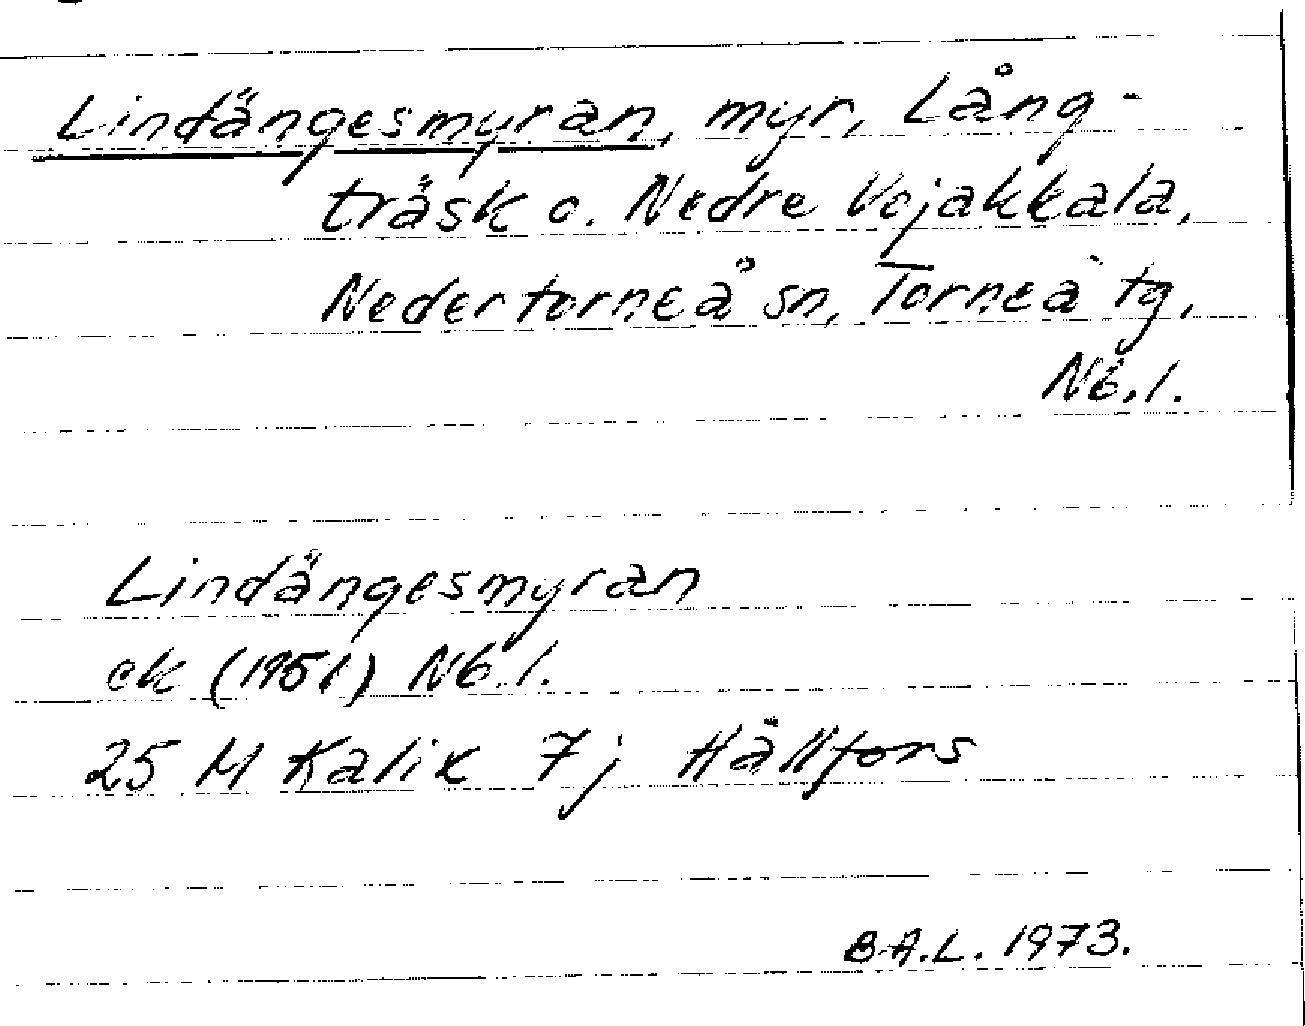 Lindängesmyran, myr, Lång-
träsk o. Nedre Vojakkala,
Nedertorneå sn, Torneå tg,
Nb. l.
Lindängesmyran
ek (1951) Nb. l.
25 M Kalix 7j Hällfors
B.A.L. 1973.